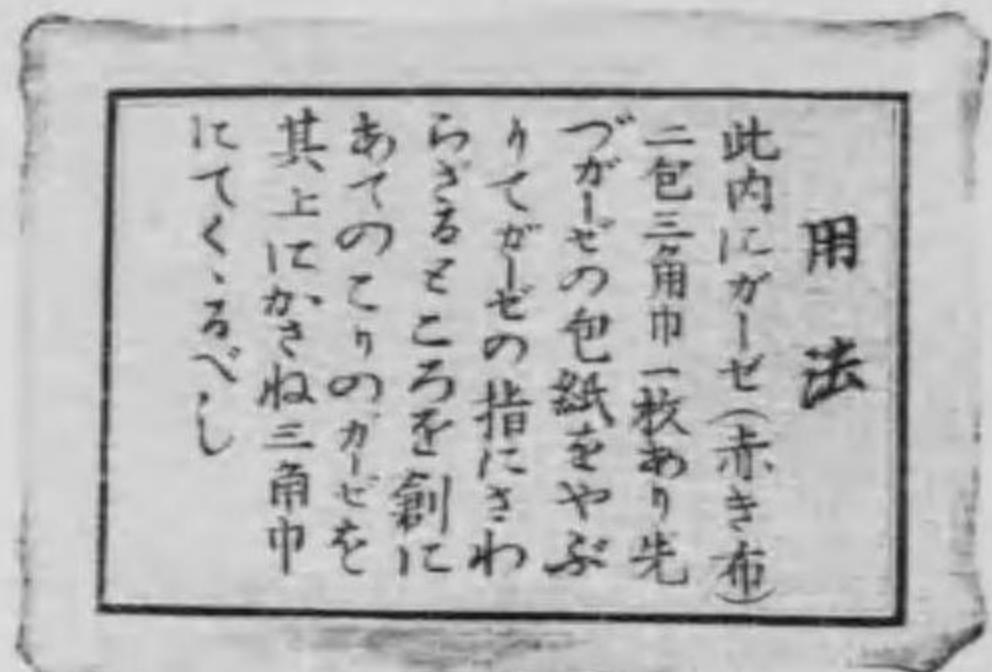 用法
此内にガーゼ(赤き布)
二包三角巾一枚あり先
づガーゼの包紙をやぶ
りてガーゼの指にさわ
らざるところを創に
あてのこりのガーゼを
其上にかさね三角巾
にてくゝるべし